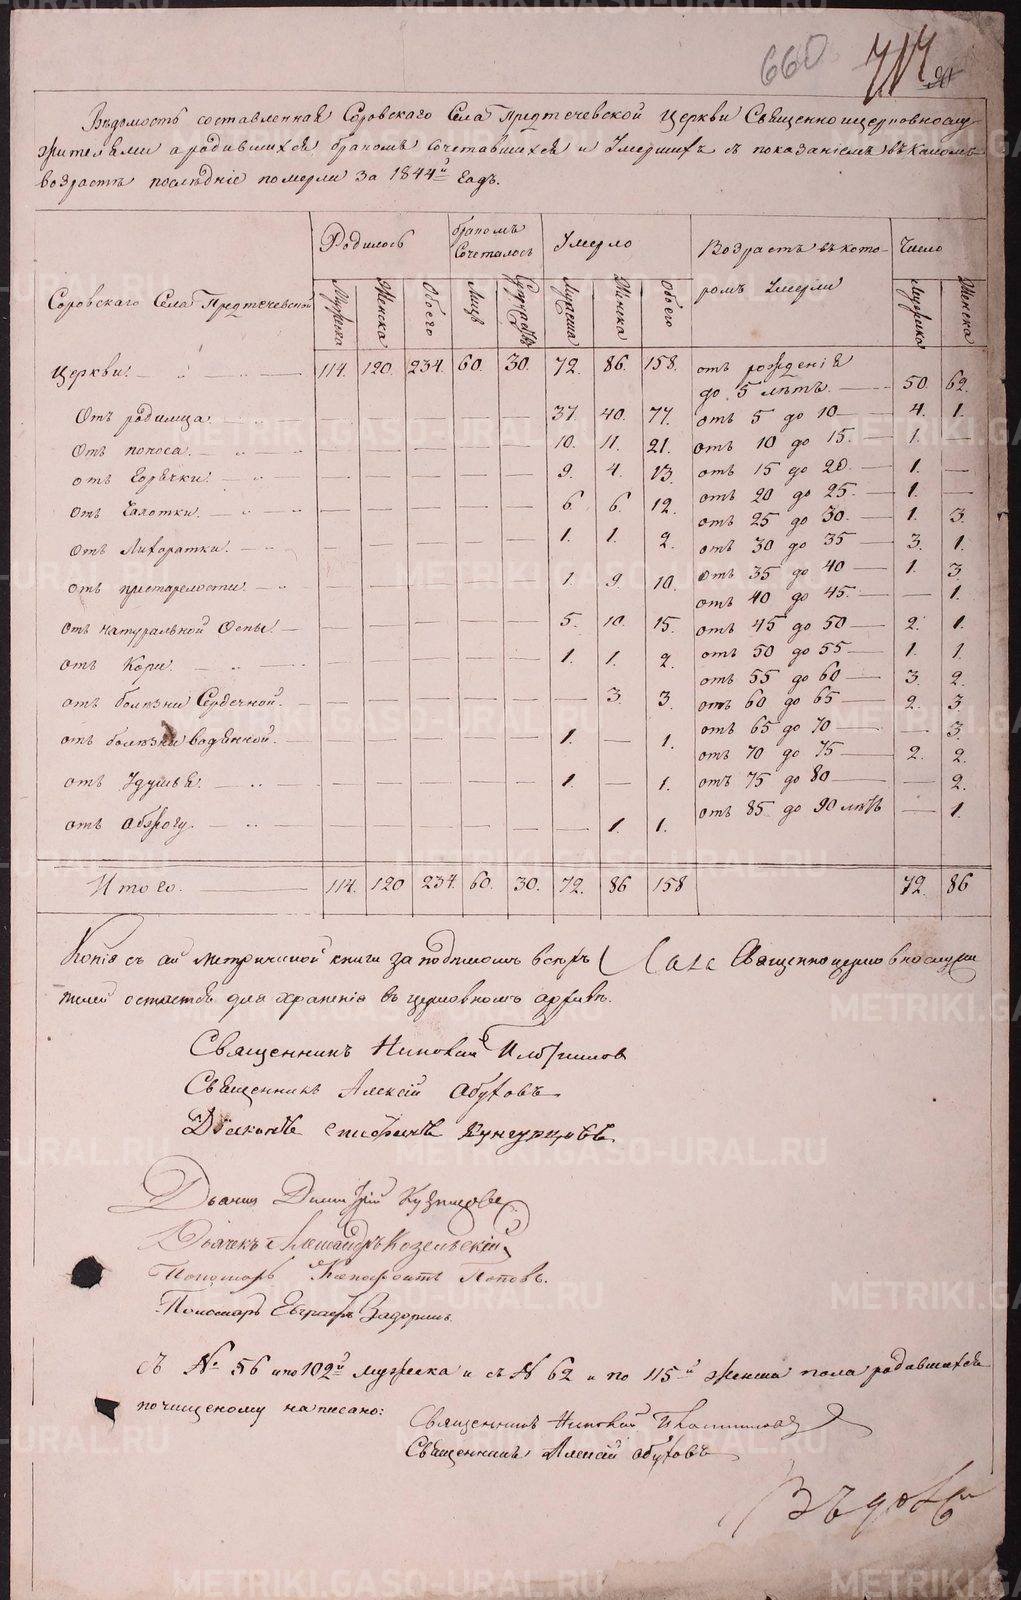 660 717
Вѣдомость составленная Соровскаго Села Предтечевской Церкви Священноцерковнослу-
жителями о родившихся бракомъ сочетавшихся и Умершихъ съ показаніемъ въ какомъ
возрастѣ послѣдніе померли за 1844й Годъ.
Родилось бракомъ Сочеталось Умерло Возрастъ въ кото- Число
Соровскаго Села Предтечевской Мужеска Женска Обоего Лицъ Мужеска Женска Обоего ромъ Умерли Мужеска Женска
Церкви. 114. 120. 234. 60. 30. 72. 86. 158. отъ рожденія
до 5 лѣтъ. 50. 62.
Отъ родимца 37. 40. 77. отъ 5 до 10 4. 1.
Отъ поноса. 10. 11. 21. отъ 10 до 15. 1. —
отъ Горячки. 9. 4. 13. отъ 15 до 20. 1. —
отъ 20 до 25. 1. —
Отъ Чахотки. 6. 6. 12. отъ 25 до 30. 1. 3.
Отъ Лихоратки. 1. 1. 2. отъ 30 до 35 3. 1.
отъ 35 до 40 1. 3.
отъ престарелости. 1. 9. 10. отъ 40 до 45. — 1.
отъ натуральной Оспы. 5. 10. 15. отъ 45 до 50 2. 1.
отъ Кори. 1. 1. 2. отъ 50 до 55 1. 1.
отъ 55 до 60 3. 2.
отъ болѣзни Сердечной. — 3. 3. отъ 60 до 65 2. 3.
отъ 65 до 70 — 3.
отъ болѣзни водяной. 1. — 1. отъ 70 до 75 2. 2.
отъ Удушья. 1. — 1. отъ 75 до 80 — 2.
отъ — 1. 1. отъ 85 до 90 лѣтъ — 1.
Итого. 114. 120 234. 60. 30. 72. 86 158 72. 86
Копія съ сей метрической книги за подписомъ всѣхъ Священноцерковнослужи
телей остается для храненія въ церковномъ архивѣ.
Священникъ Николай
Священникъ Алексій Обуховъ
Діаконъ Стефанъ Кунгурцовъ
Дьячекъ Димитрій
Дьячекъ Александръ Козельскій
Пономарь Поповъ.
Пономарь Евграфъ
съ № 56 и по 102й мужеска и съ № 62 и по 115й женска пола родившихся
почищеному написано:
Священникъ Николай
Священникъ Алексій Обуховъ
METRIKI.GASO-URAL.RU